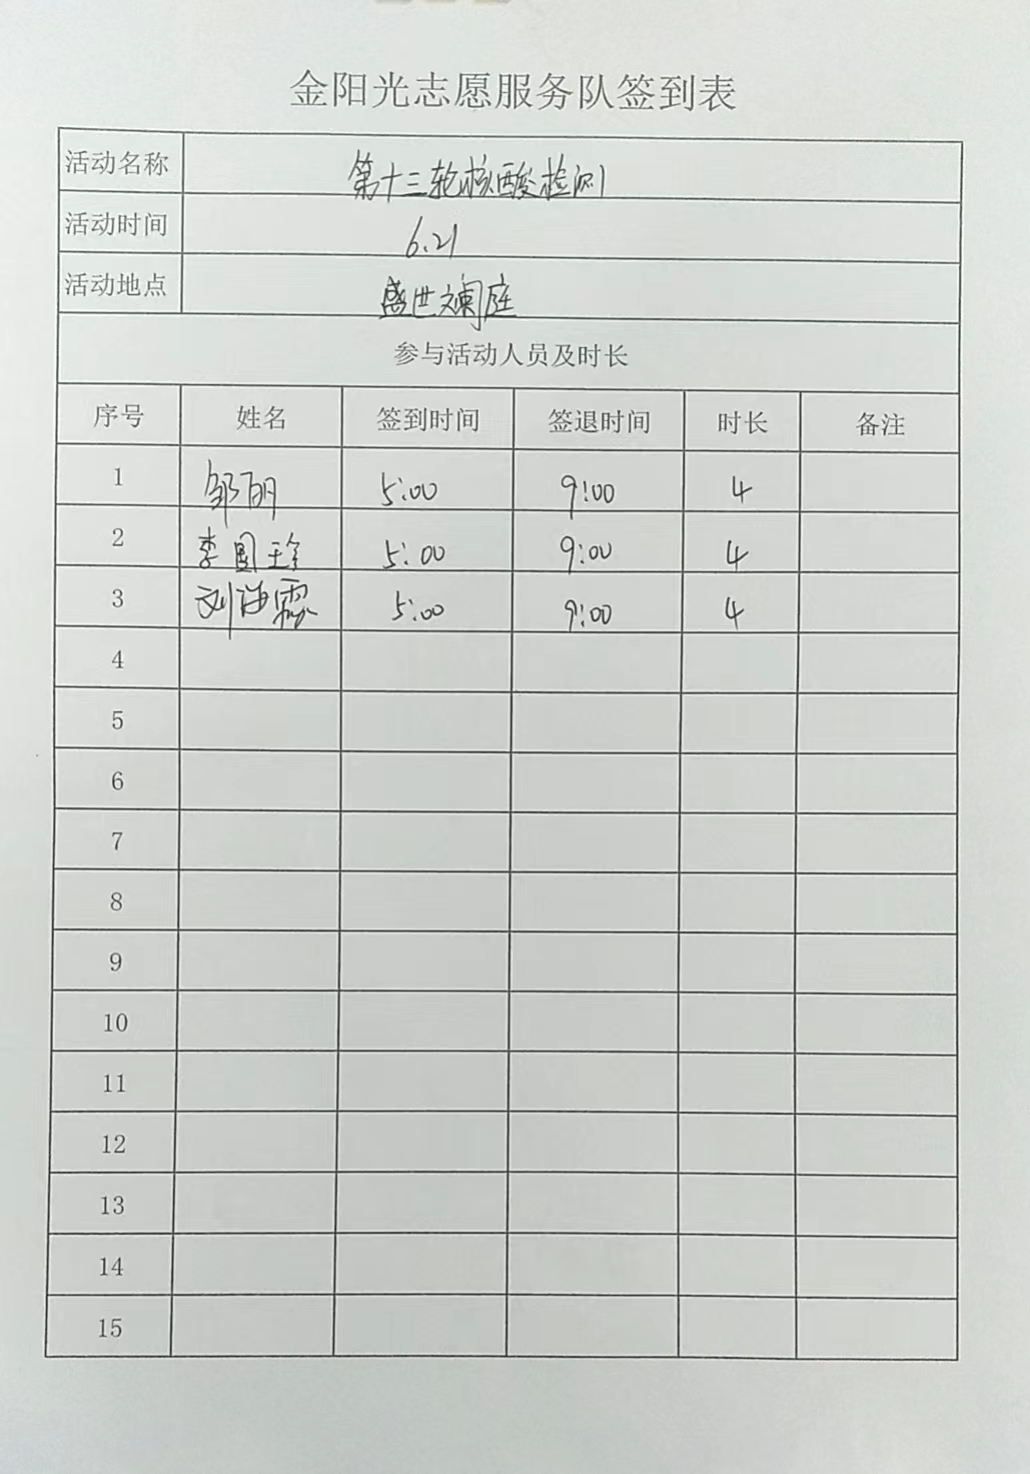 金阳光志愿服务队签到表
活动名称 第十三轮核酸检测
活动时间 6.21
活动地点 盛世斓庭
参与活动人员及时长
序号 姓名 签到时间 签退时间 时长 备注
1 邹丽 5:00 9:00 4
2 李国珍 5:00 9:00 4
3 刘海霞 5:00 9:00 4
4
5
6
7
8
9
10
11
12
13
14
15